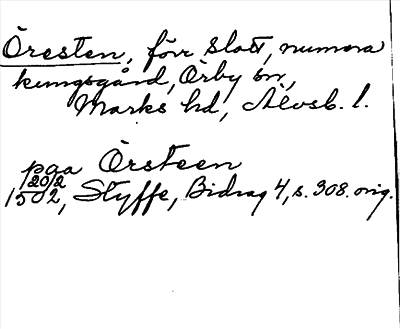 Öresten, förr slott, numera
kungsgård, Örby sn,
Marks hd, Älvsb. l.
paa Örsteen
20/2
1502, Styffe, Bidrag 4, s. 308. orig.